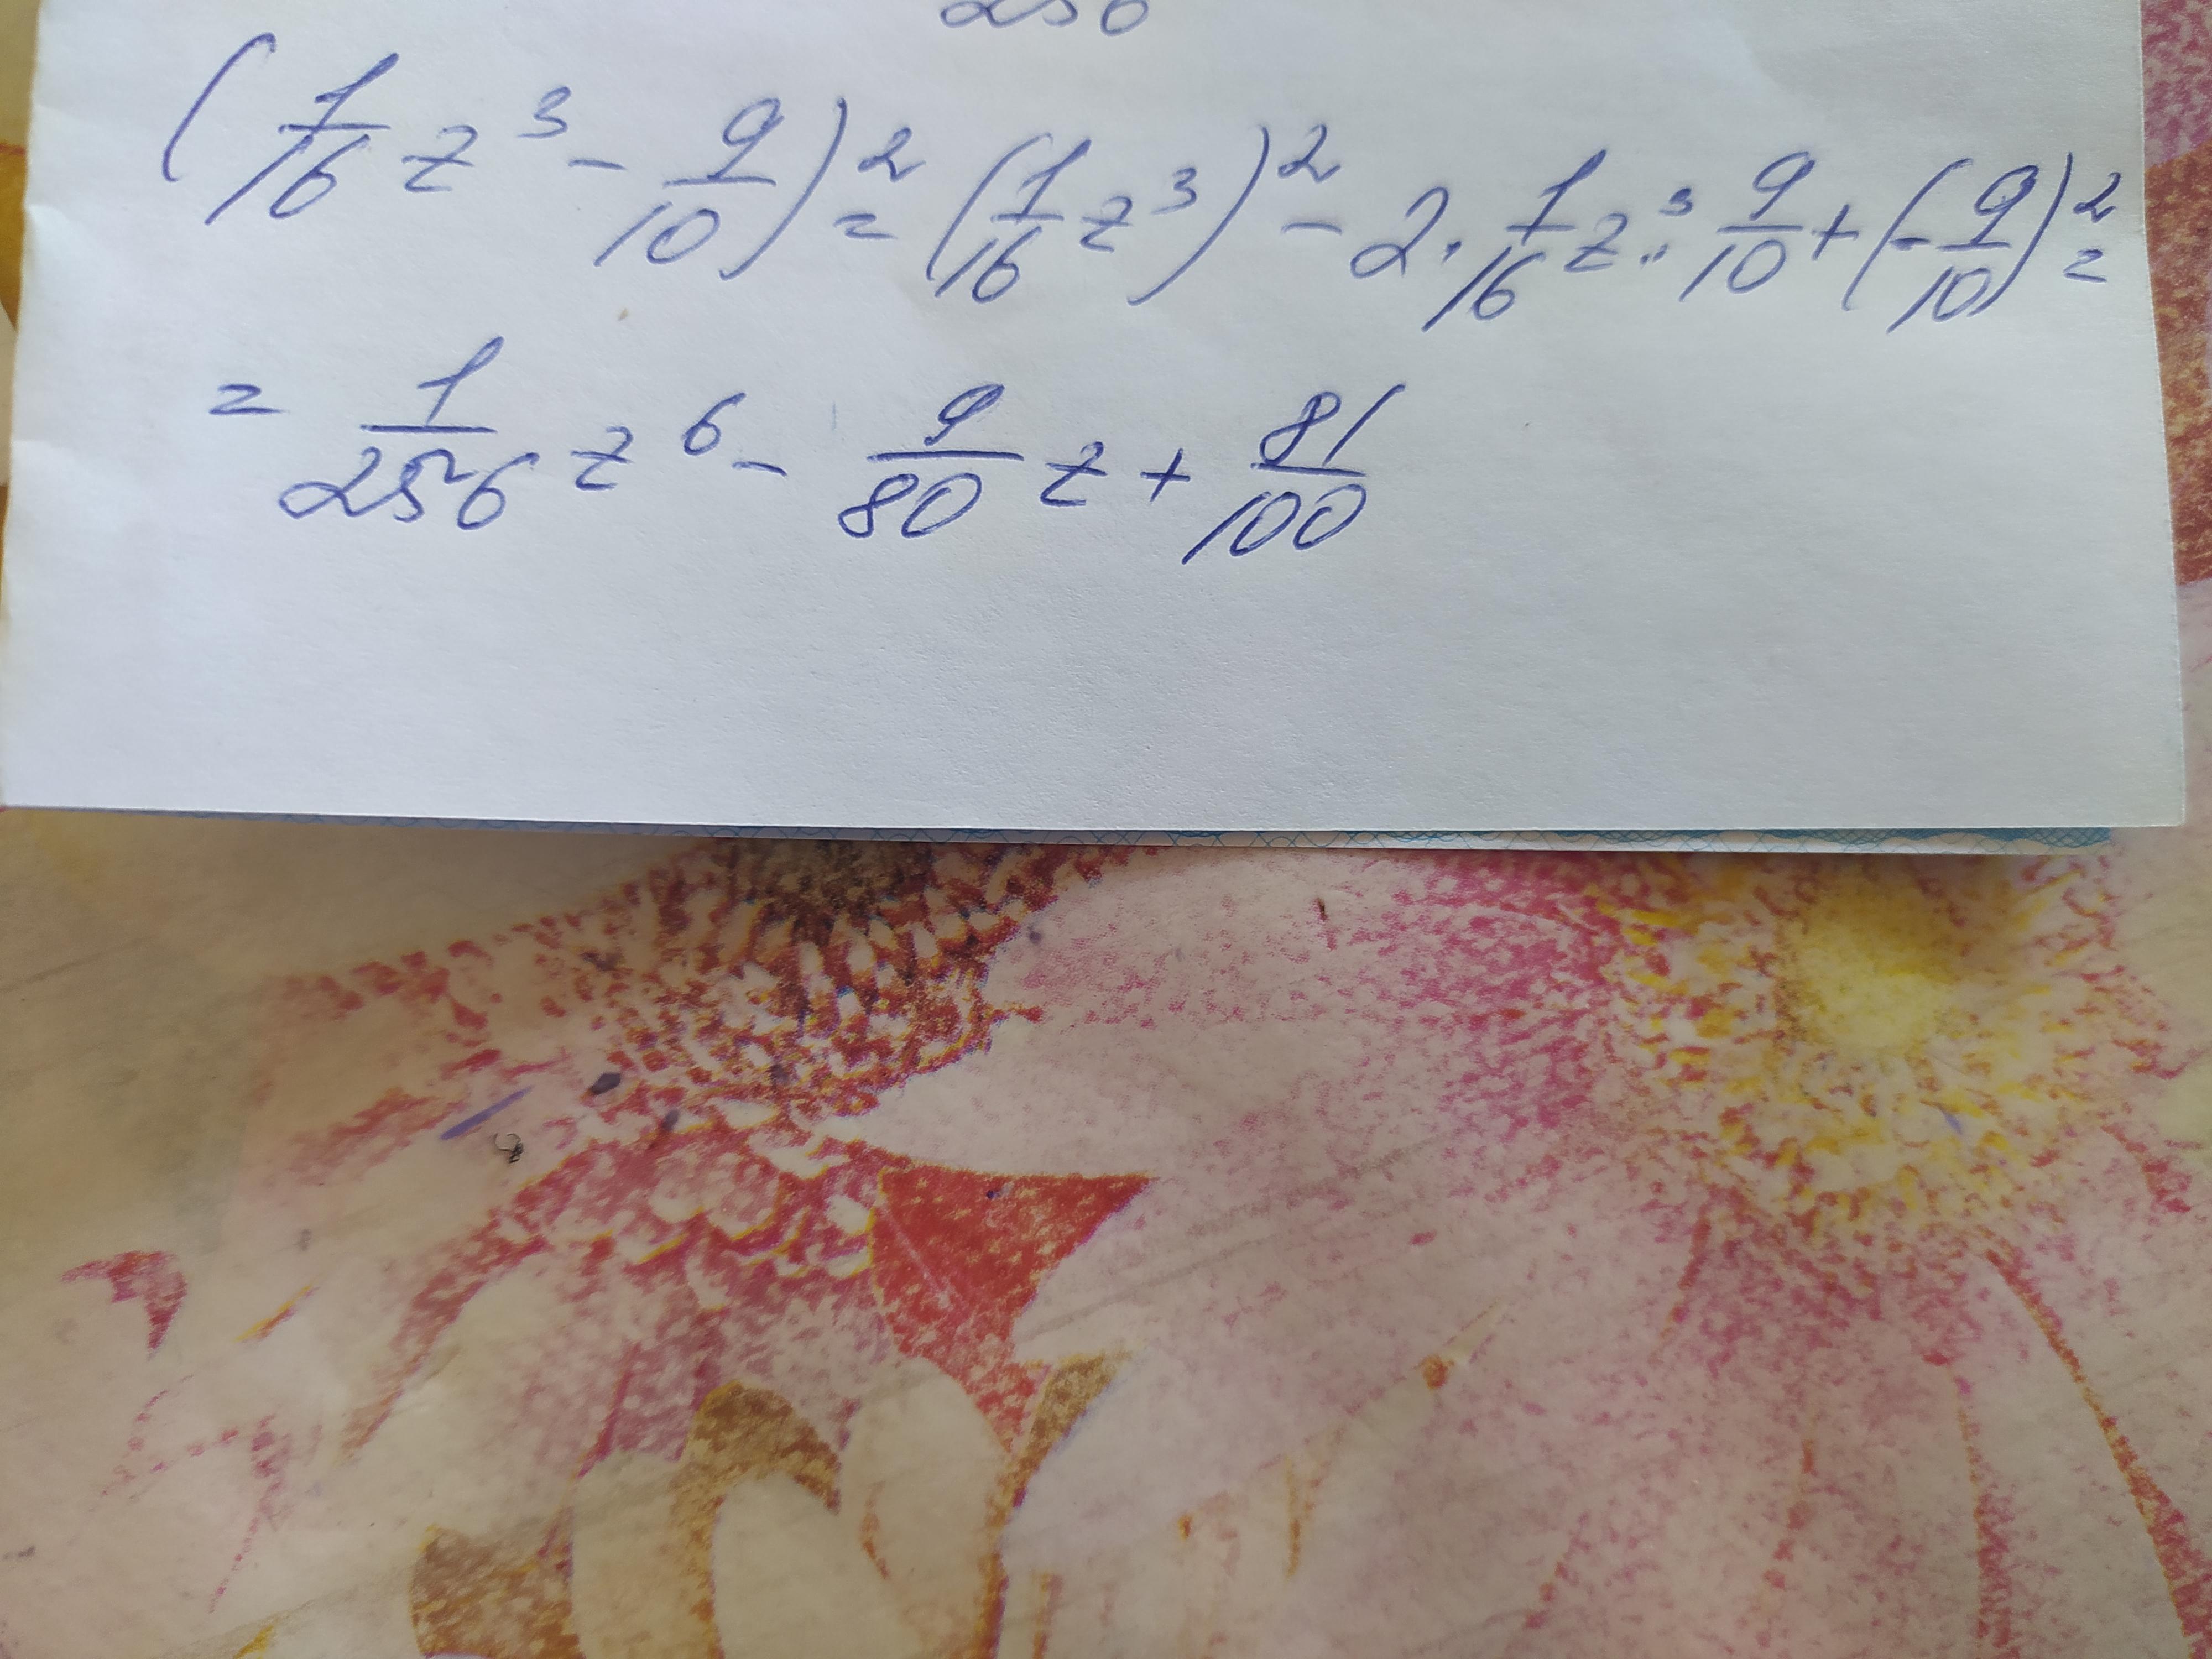 256
(1/16 z³ - 9/10)² = (1/16 z³)² - 2 · 1/16 z³ · 9/10 + (-9/10)² =
= 1/256 z⁶ - 9/80 z + 81/100